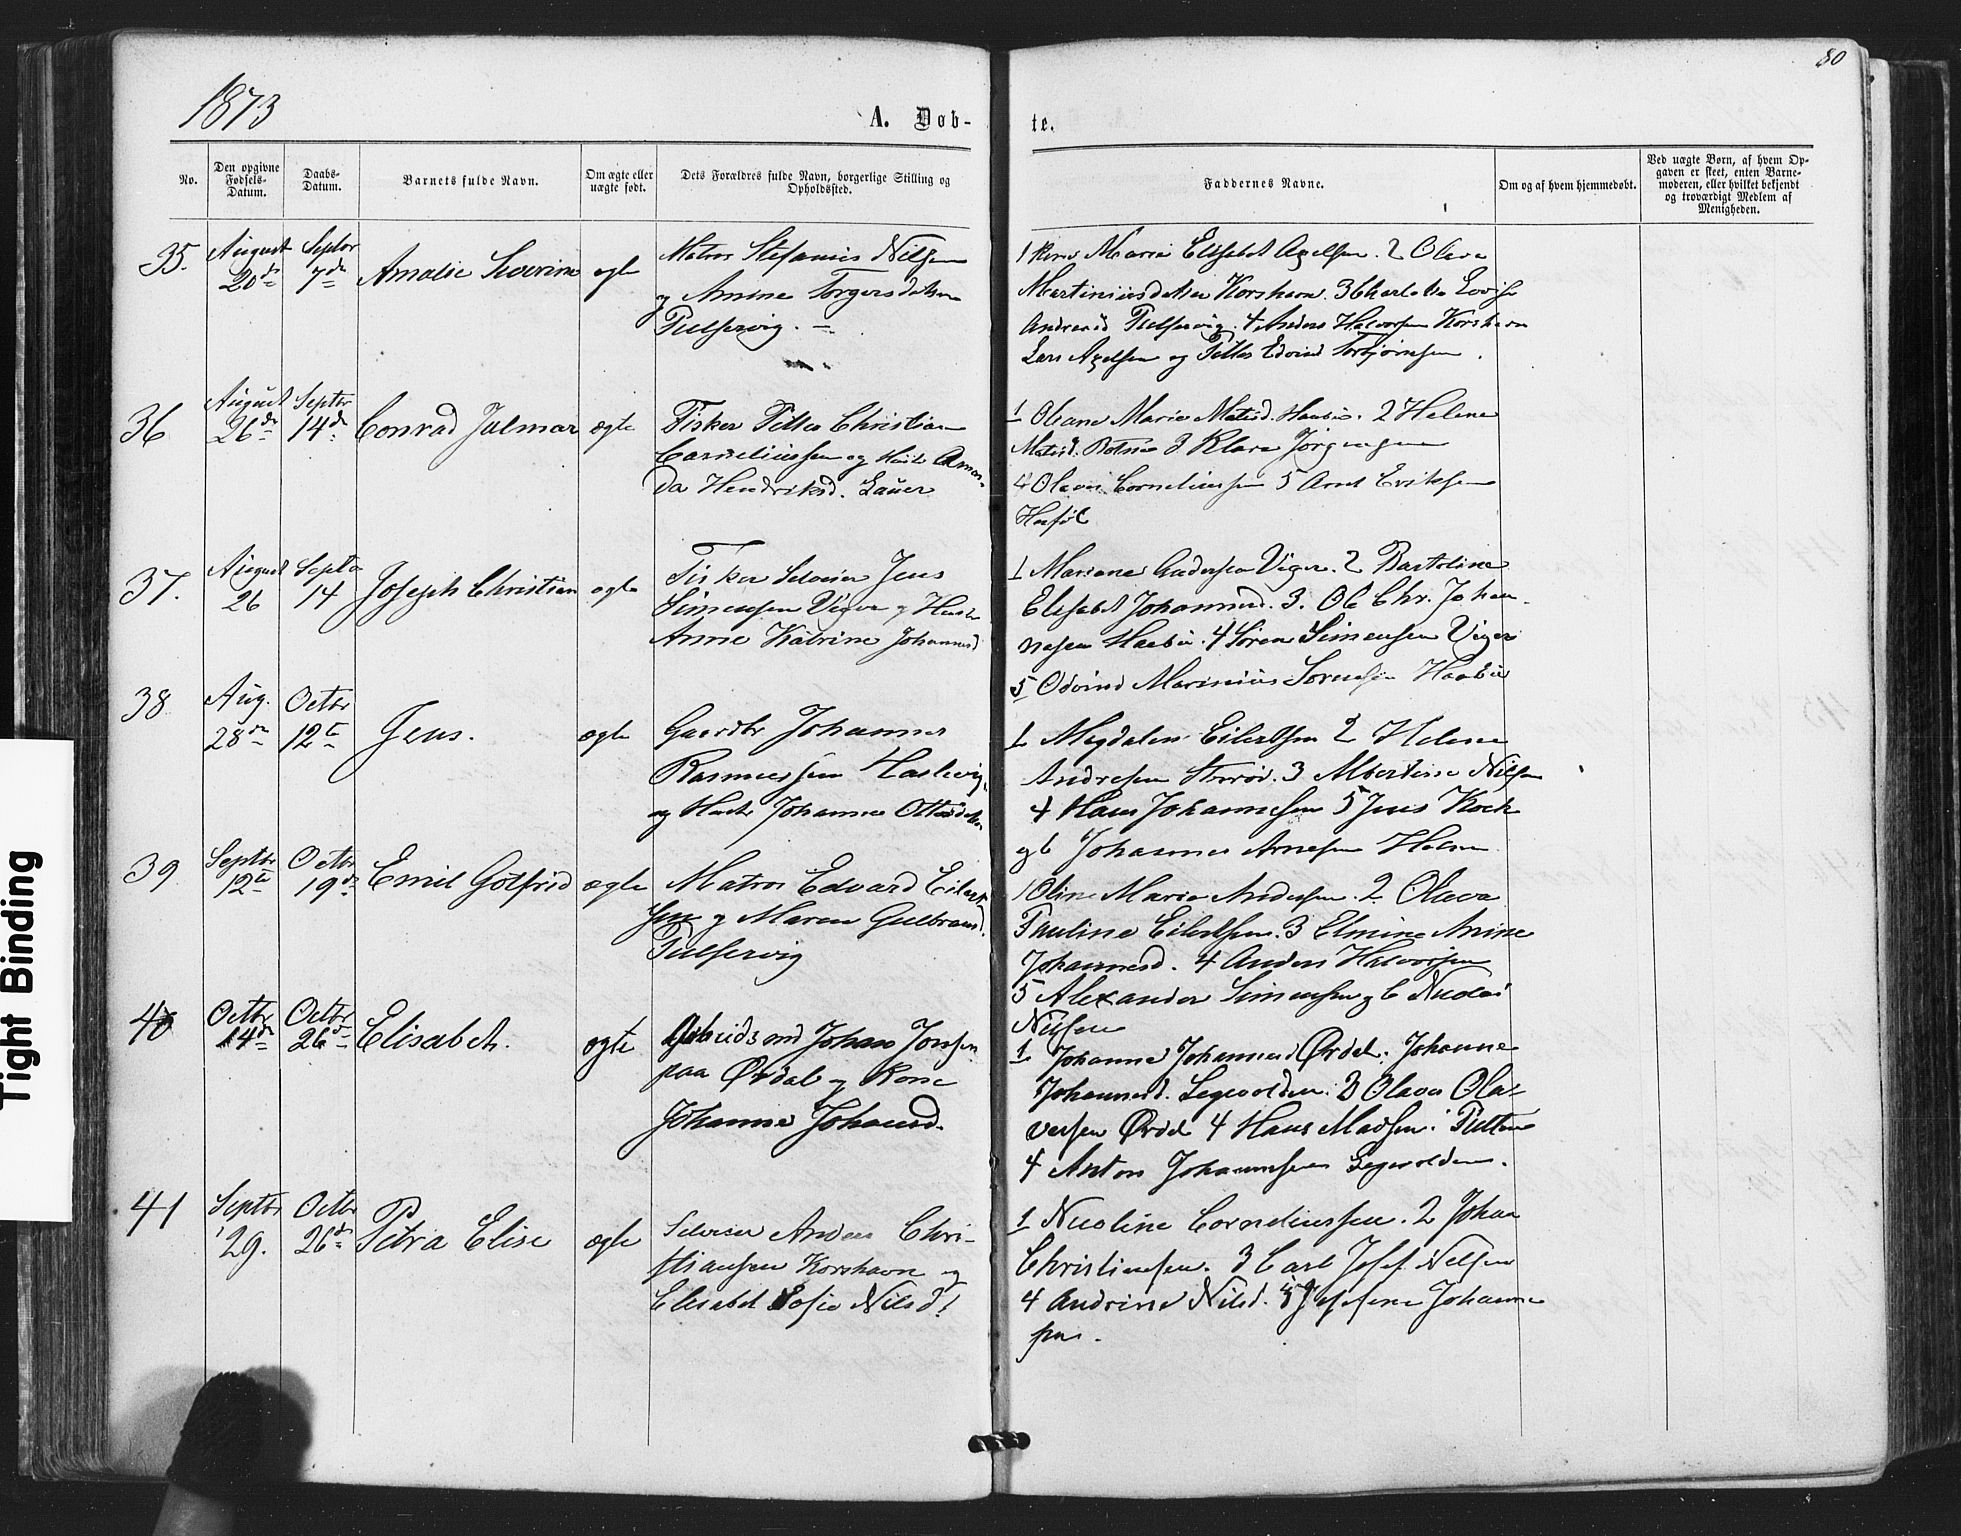 80
1873
A. Døb-
te.
No.
Den opgivne
Fødsels-
Datum.
Daabs-
Datum.
Barnets fulde Navn.
Om ægte eller
uægte født.
Dets Forældres fulde Navn, borgerlige Stilling og
Opholdssted.
Faddernes Navne.
Om og af hvem hjemmedøbt.
Ved uægte Børn, af hvem Op-
gaven er skeet, enten Barne-
moderen, eller hvilket bekjendt
og troværdigt Medlem af
Menigheden.
35.
August
20de
Septbr
7de
Amalie Severine
ægte
Matros Stefanus Nilsen
og Anine Torgersdatter
Pulservig.
Maria Elisabet Axelsen. 2 Olava
Martiniusdatter Korshavn. 3 Charlotte Lovise
Andreasd Pulservig. 4 Anders Halvorsen Korshavn
Lars Axelsen og Petter Edvind Torbjørnsen.
36
August
26de
Septbr
14de
Conrad Jalmar
ægte
Fisker Petter Christian
Corneliussen og Hustr Aman-
da Hendriksd. Lauer
1 Oleane Marie Matisd. 2 Helene
Matisd. Botne 3 Klara Jørgensen
4 Olavus Corneliussen 5 Arnt Eriksen
Herføl
37.
August
26
Septbr
14
Joseph Christian
ægte
Fisker Selveier Jens
Simensen Viger og Hustr
Anne Katrine Johannesd
1 Mariane Andersen Viger. 2 Bartoline
Elisabet Johannesd. 3. Ol. Chr. Johan-
nesen Haabu. 4 Søren Simensen Viger
5 Edvind Marinius Sørensen Haabu
38
Aug.
28de
Octbr
12te
Jens.
ægte
Gaardbr Johannes
Rasmussen Haslevig
og Hustr Johanne Ottersdatter
1 Magdalen Eilertsen 2 Helene
Andresen Storød. 3 Albertine Nilsen
4 Hans Johannesen 5 Jens Koch
og 6 Johannes Arnesen
39
Septbr
12te
Octbr
19de
Emil Gotfrid
ægte
Matros Edvard Eilert-
sen og Maren Gulbrandsd.
Pulservig
1 Oline Marie Andersen. 2 Olava
Pauline Eilertsen. 3 Elmine Anine
Johannesd. 4 Anders Halvorsen
5 Alexander Simensen og 6 Nicolai
Nilsen
40
Octbr
14de
Octbr
26de
Elisabeth.
ægte
Arbeidsmd Johan Jonsen
paa Ørdal og Kone
Johanne Johansd.
1 Johanne Johannesd Ørdal. Johanne
Johannesd. Legevolden. 3 Olava Ola-
vesen Ørdal 4 Hans Madsen.
4 Anton Johannesen Legevolden.
41
Septbr
29.
Octbr
26de
Petra Elise
ægte
Selveier Anders Chri-
stiansen Korshavn og
Elisabet Sofie Nilsd.
1 Nicoline Corneliussen. 2 Johan
Christiansen. 3 Carl Josef Nilsen
4 Andrine Nilsd. 5 Josefine Johanne
sen.
Tight Binding